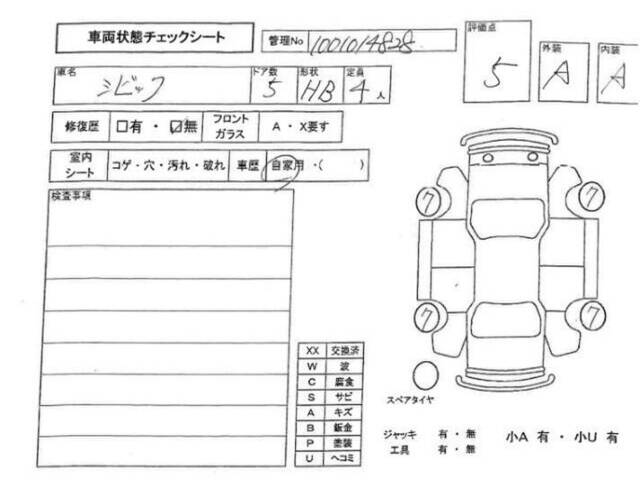 車両状態チェックシート 管理No 1001014828 評価点 5 外装 A 内装 A
車名 シビック ドア数 5 形状 HB 定員 4人
修復歴 □有・☑無 フロントガラス A・X要す
室内シート コゲ・穴・汚れ・破れ 車歴 自家用・( )
検査事項
7 7
7 7
XX 交換済
W 波
C 腐食
S サビ
A キズ
B 鈑金
P 塗装
U ヘコミ
スペアタイヤ
ジャッキ 有・無 小A 有・小U 有
工具 有・無